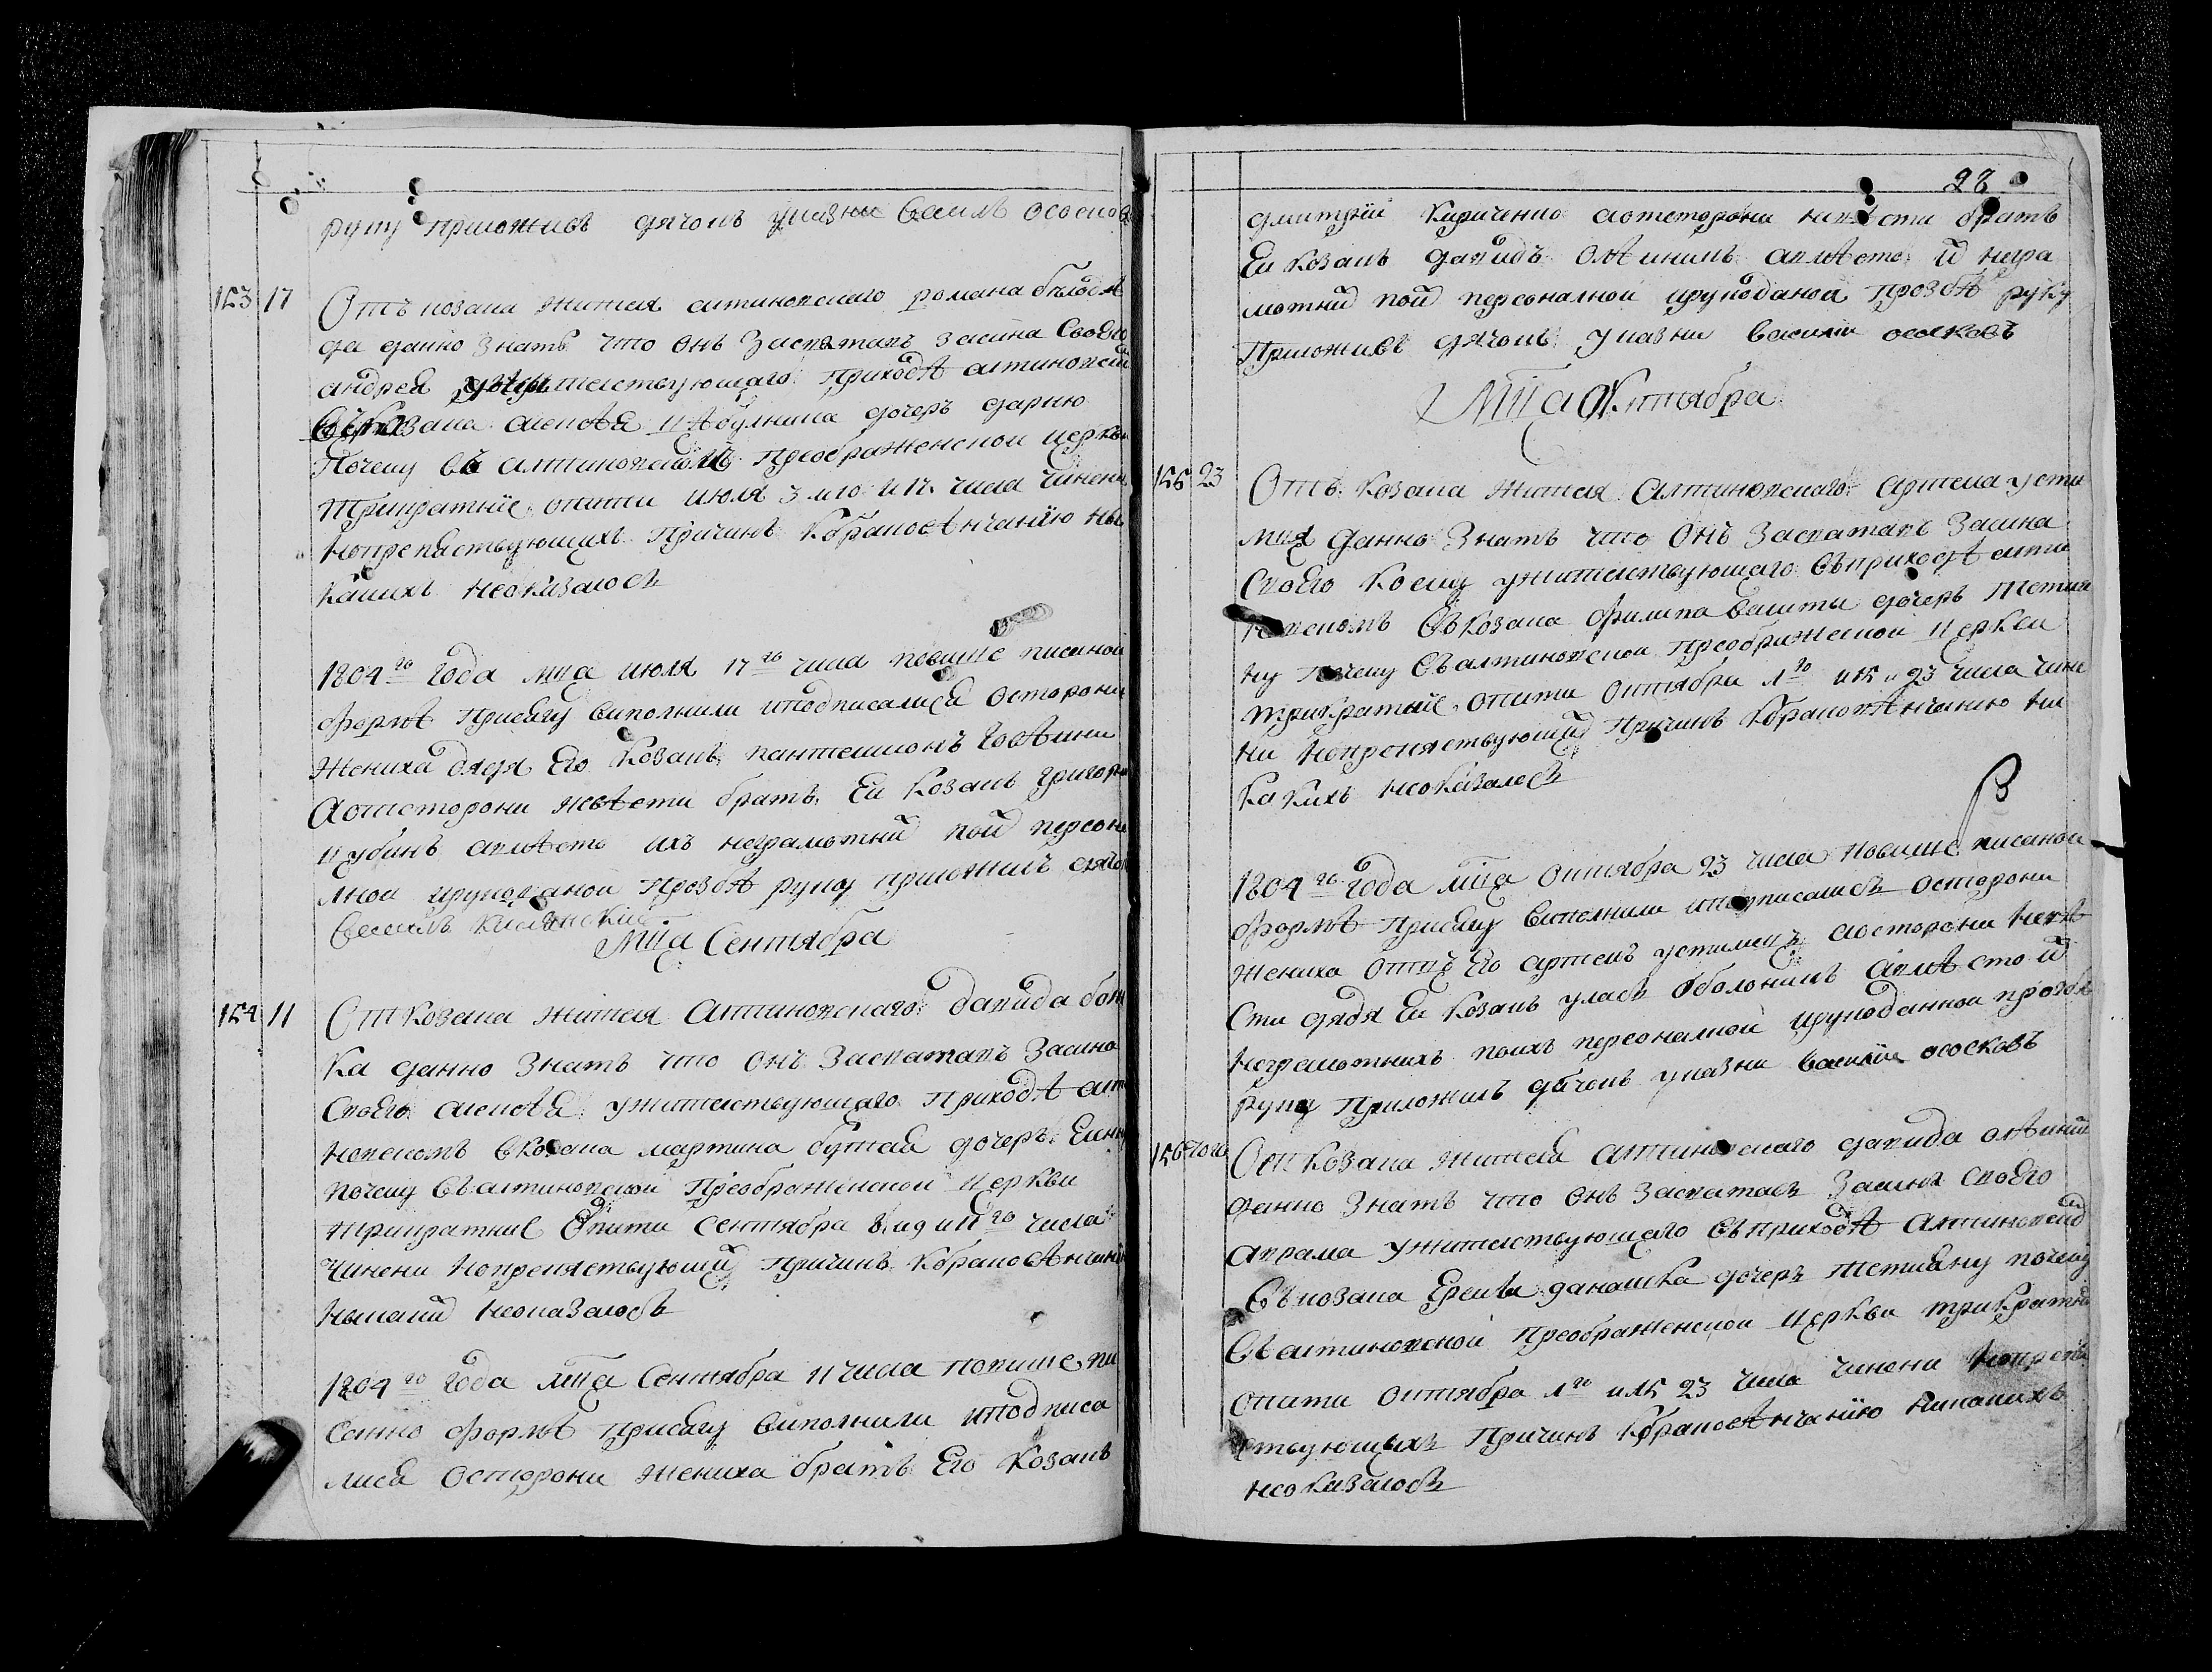 руку приложивъ дячокъ указни Василъ Ососковъ
153 17 Отъ козака жителя алтиновскаго романа білодѣ
да данно знать что онъ засваталъ засина своего
андрея ужителствующаго приходѣ алтиновск
въ козака алеѯѣя дочеръ дарию
Почему въ алтиновской преображенской церкви
трикратние опити июля 3 и 10 и 17 числа чинени
нопрепяствующихъ причинъ кбраковѣнчанію ны
какихъ неоказалось
1804 го года мца июля 17 го числа повише писаной
формѣ присягу виполнили иподписалися осторони
жениха дядя его козакъ пантелимонъ
Аотсторони невѣсти братъ еи козакъ григорий
аимѣсто ихъ неграмотних поих персона
лной ируподаной прозбѣ руку приложилъ дячокъ
Василъ
Мца Сентября
154 11 Откозака жителя Алтиновскаго давида бон
ка данно знать что онъ засваталъ засина
своего алеѯѣя ужителствующаго приходѣ алти
новскомъ вкозака мартина бугая дочеръ
почему въ алтиновской Преображенской церкви
трикратние опити сентября 8 и 9 и 11 го числа
чинени нопрепяствующих причинъ кбраковѣнчаній
ныкаких неоказалось
1804 го года мца Сентября 11 числа повише пи
санно формѣ присягу виполнили иподписа
лися осторони жениха братъ его козакъ
28
дмитрий Кириченко аотсторони невѣсти братъ
еи козакъ давидъ Олѣйникъ авмѣсто их негра
мотних поих персоналной ируподаной прозбѣ руку
приложивъ дячокъ указни василий ососковъ
Мца Октября
155 23 Отъ козака жителя Алтиновскаго артема усти
мця данно знать что онъ засваталъ засина
своего коему ужителствующаго въприходѣ алти
новскомъ въкозака филипа дочеръ тетия
ну почему въалтиновской преображеской церкви
трикратние опити октября 1 го и 15 и 23 числа чине
ни нопрепяствующих причинъ кбраковѣнчанию ни
какихъ неоказалесь
1804 го года мца октября 23 числа повише писаной
формѣ присягу виполнили иподписалесь осторони
жениха отецъ его артемъ устимецъ аосторони невѣ
сти дядя еи козакъ уласъ оболоникъ авмѣсто их
неграмотнихъ поихъ персоналной ируподанной прозбѣ
руку приложилъ дячокъ указни василій ососковъ
156 того Откозака жителя алтиновского давида олѣйник
данно знать что онъ засваталъ засина своего
аврама ужителствующаго въприходѣ алтиновских
въкозака данашка дочеръ тетиану почему
въалтиновской преображенской церкви трикратни
опити октября 1 го и 15 23 числа чинени нопрепя
ствующихъ причинъ кбраковѣнчанію никакихъ
неоказалось